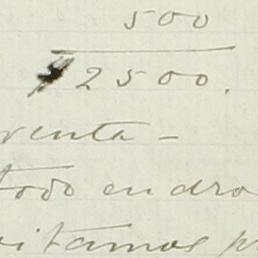 500
$2500.
venta -
todo en dro
itamos p